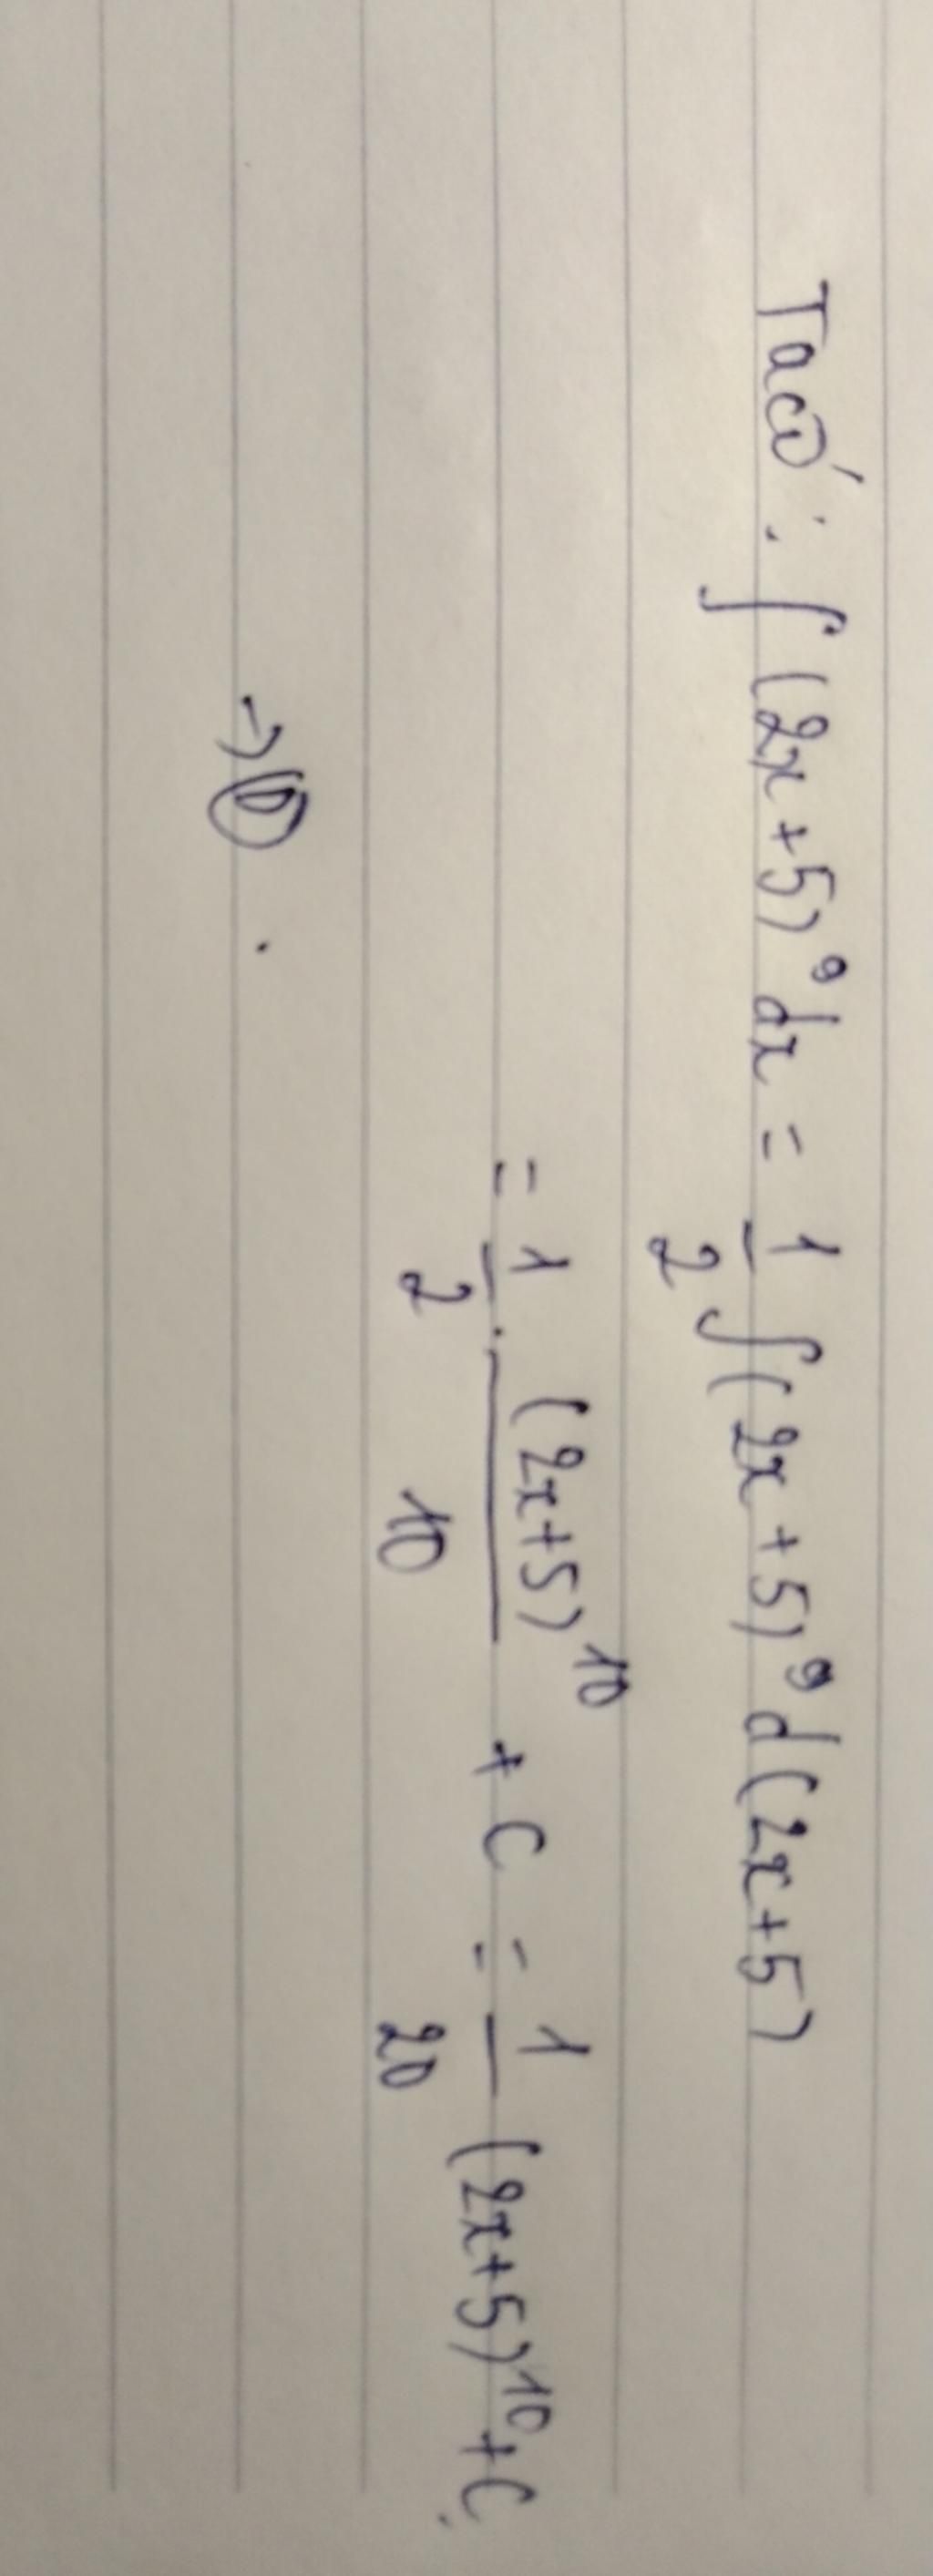 Ta có : ∫(2x+5)⁹dx = 1/2 ∫(2x+5)⁹d(2x+5)
= 1/2 . (2x+5)¹⁰/10 + C = 1/20 (2x+5)¹⁰+C.
→ D .